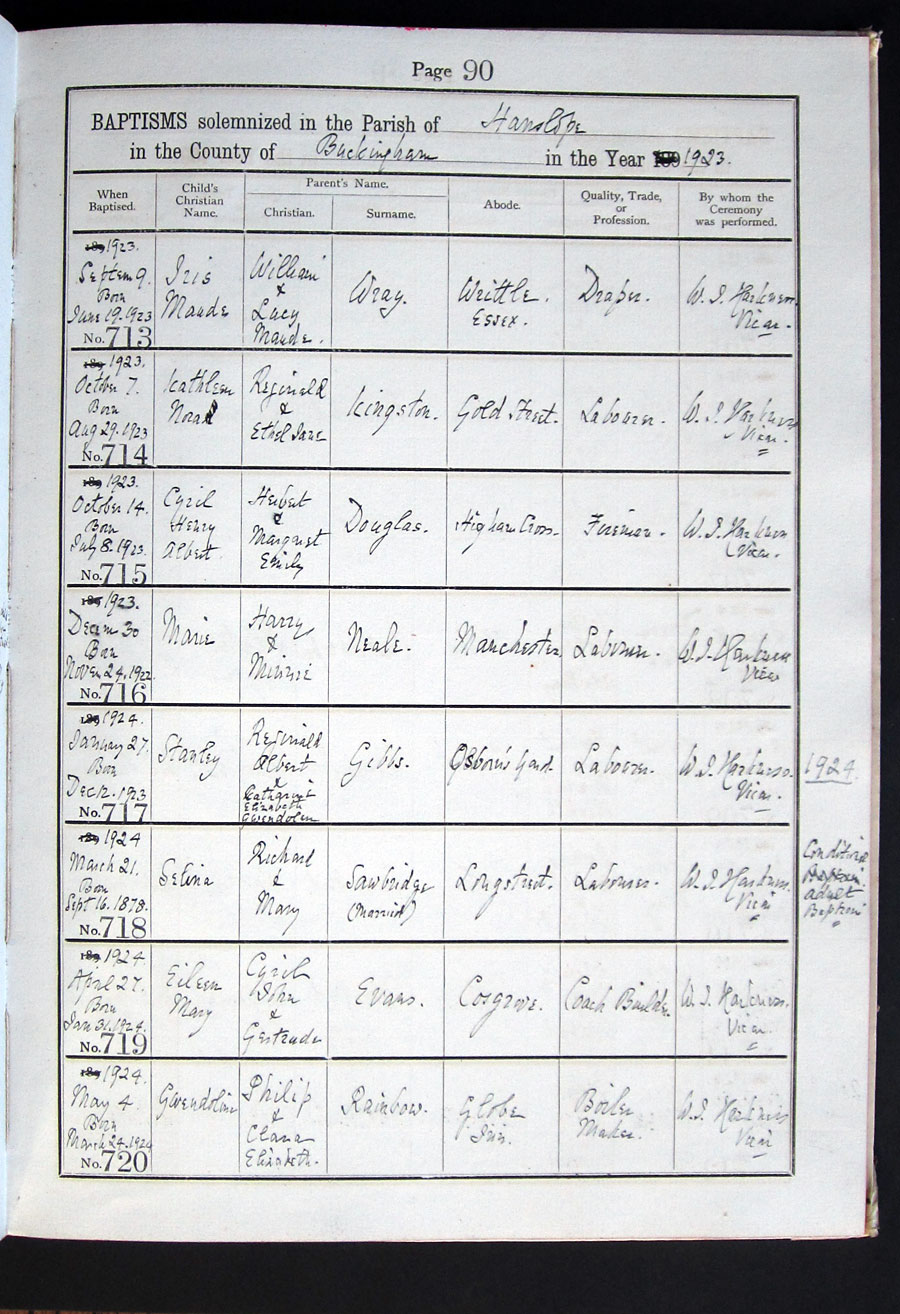 Page 90
BAPTISMS solemnized in the Parish of Hanslope
in the County of Buckingham in the Year 1923.
When Baptised.
Child's Christian Name.
Parent's Name.
Christian.
Surname.
Abode.
Quality, Trade, or Profession.
By whom the Ceremony was performed.
1923.
Septem 9.
Born
June 19. 1923
No. 713
Iris
Maude
William
&
Lucy
Maude.
Wray.
Writtle.
Essex.
Draper.
W. J. Harkness.
Vicar.
1923.
October 7.
Born
Aug 29. 1923
No. 714
Kathleen
Nora
Reginald
&
Ethel Jane
Kingston.
Gold Street.
Labourer.
W. J. Harkness
Vicar.
1923.
October 14.
Born
July 8. 1923.
No. 715
Cyril
Henry
Albert.
Herbert
&
Margaret
Emily
Douglas.
Higham Cross.
Fireman.
W. J. Harkness
Vicar.
1923.
Decem 30
Born
Novem 24. 1922.
No. 716
Marie
Harry
&
Minnie
Neale.
Manchester.
Labourer.
W. J. Harkness
Vicar
1924.
January 27.
Born
Dec 12. 1923
No. 717
Stanley
Reginald
Albert
&
Catharine
Elizabeth
Gwendolen
Gibbs.
Osborn's Yard.
Labourer.
W. J. Harkness.
Vicar.
1924
1924
March 21.
Born
Sept 16. 1878.
No. 718
Selina
Richard
&
Mary
Sawbridge
(Married)
Longstreet.
Labourer.
W. J. Harkness.
Vicar
Conditional
adult
Baptism
1924
April 27.
Born
Jan 31. 1924.
No. 719
Eileen
Mary
Cyril
John
&
Gertrude
Evans.
Cosgrove.
Coach Builder.
W. J. Harkness.
Vicar.
1924.
May 4.
Born
March 24. 1924
No. 720
Gwendoline
Philip
&
Clara
Elizabeth.
Rainbow.
Globe
Inn.
Boiler
Maker.
W. J. Harkness
Vicar